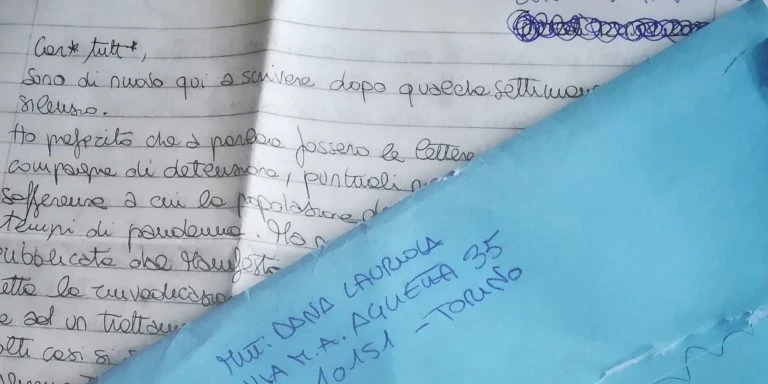 Car* tutt*,
Sono di nuovo qui a scrivere dopo qualche settimana
silenzio.
Ho preferito che a parlare fossero le lettere
compagne di detenzione, puntuali
sofferenze a cui la popolazione
tempi di pandemia. Ho
pubblicate da Manifesto
le rivendicazio
e ad un trattam
olti casi si
Mitt: DANA LAURIOLA
VIA M.A. AGLIETTA 35
10151 - TORINO